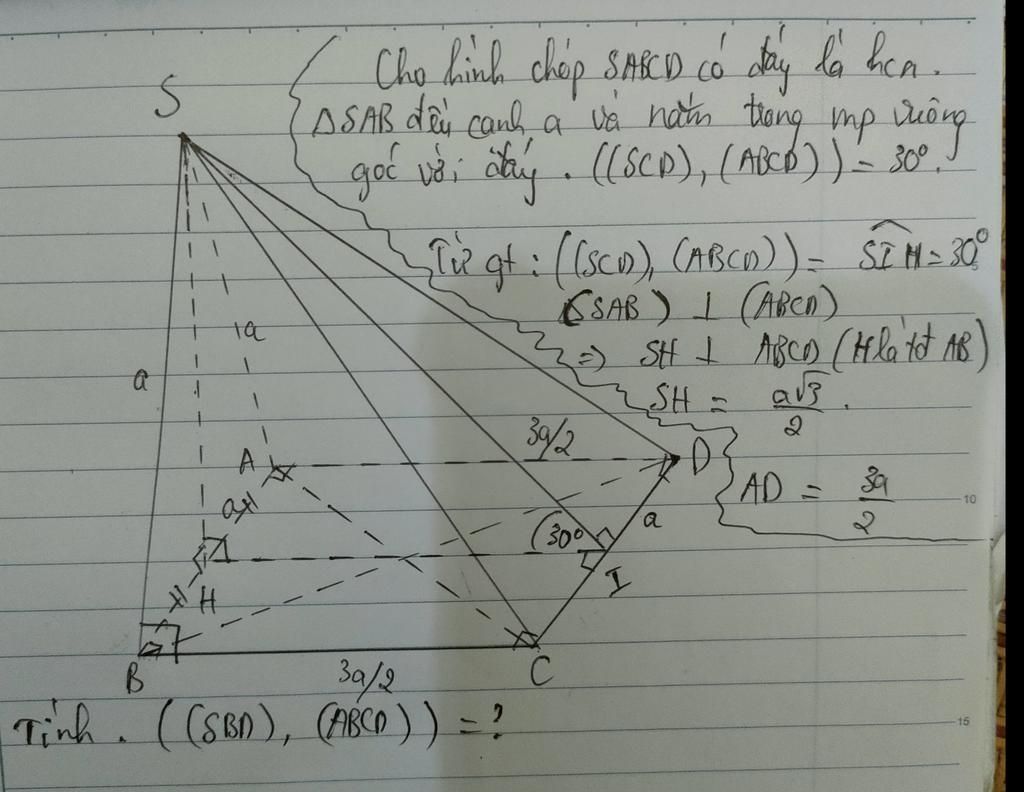 Cho hình chóp SABCD có đáy là hcn.
ΔSAB đều cạnh a và nằm trong mp vuông
góc với đáy. ((SCD), (ABCD)) = 30°.
Từ gt: ((SCD), (ABCD)) = SIH = 30°
(SAB) ⊥ (ABCD)
=> SH ⊥ ABCD (H là tđ AB)
SH = a√3/2.
AD = 3a/2
S
a
a
A
3a/2
D
a
(30°
a
I
H
B
3a/2
C
Tính. ((SBD), (ABCD)) = ?
10
15